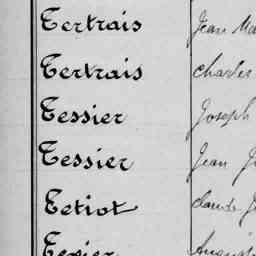 Tertrais Jean Ma
Tertrais Charles
Tessier Joseph
Tessier Jean
Tetiot Claude
Texier